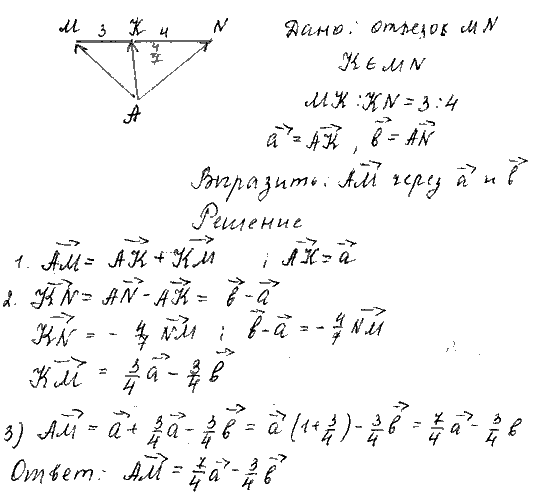 M 3 K 4 N
4/7
A
Дано: отрезок MN
K ∈ MN
MK : KN = 3 : 4
a⃗ = AK⃗, b⃗ = AN⃗
Выразить: AM⃗ через a⃗ и b⃗
Решение
1. AM⃗ = AK⃗ + KM⃗ ; AK⃗ = a⃗
2. KN⃗ = AN⃗ - AK⃗ = b⃗ - a⃗
KN⃗ = - 4/7 NM⃗ ; b⃗ - a⃗ = - 4/7 NM⃗
KM⃗ = 3/4 a⃗ - 3/4 b⃗
3) AM⃗ = a⃗ + 3/4 a⃗ - 3/4 b⃗ = a⃗ (1 + 3/4) - 3/4 b⃗ = 7/4 a⃗ - 3/4 b
Ответ: AM⃗ = 7/4 a⃗ - 3/4 b⃗